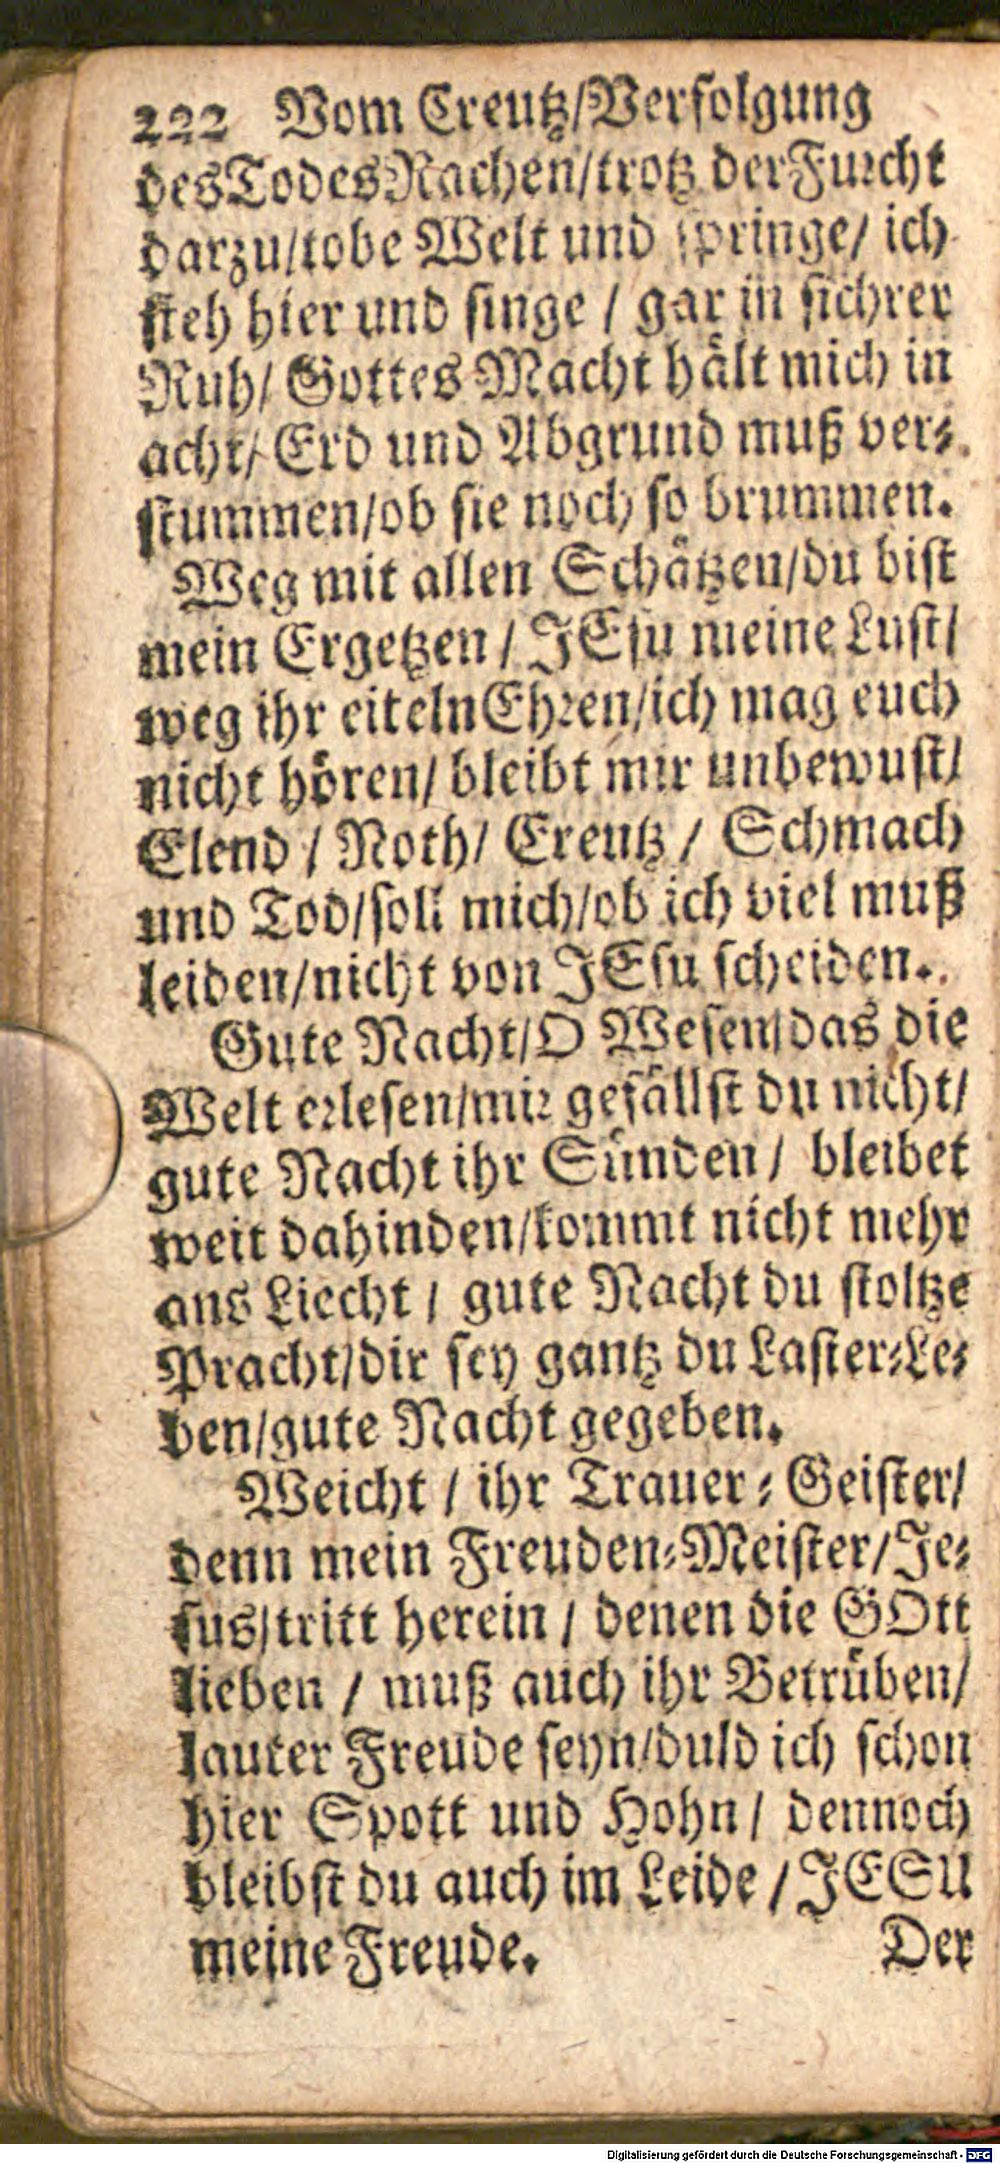 222 Vom Creutz/Verfolgung
des Todes Rachen/trotz der Furcht
darzu/tobe Welt und springe/ ich
steh hier und singe / gar in sichrer
Ruh/ Gottes Macht hält mich in
acht/ Erd und Abgrund muß ver-
stummen/ob sie noch so brummen.
Weg mit allen Schätzen/du bist
mein Ergetzen / JEsu meine Lust/
weg ihr eiteln Ehren/ich mag euch
nicht hören/ bleibt mir unbewust/
Elend / Noth/ Creutz / Schmach
und Tod/soll mich/ob ich viel muß
leiden/nicht von JEsu scheiden.
Gute Nacht/O Wesen/das die
Welt erlesen/mir gefällst du nicht/
gute Nacht ihr Sünden / bleibet
weit dahinden/kommt nicht mehr
ans Liecht / gute Nacht du stoltze
Pracht/dir sey gantz du Laster-Le-
ben/gute Nacht gegeben.
Weicht / ihr Trauer-Geister/
denn mein Freuden-Meister/Je-
sus/tritt herein / denen die GOtt
lieben / muß auch ihr Betrüben/
lauter Freude seyn/duld ich schon
hier Spott und Hohn / dennoch
bleibst du auch im Leide / JESU
meine Freude. Der
Digitalisierung gefördert durch die Deutsche Forschungsgemeinschaft - DFG